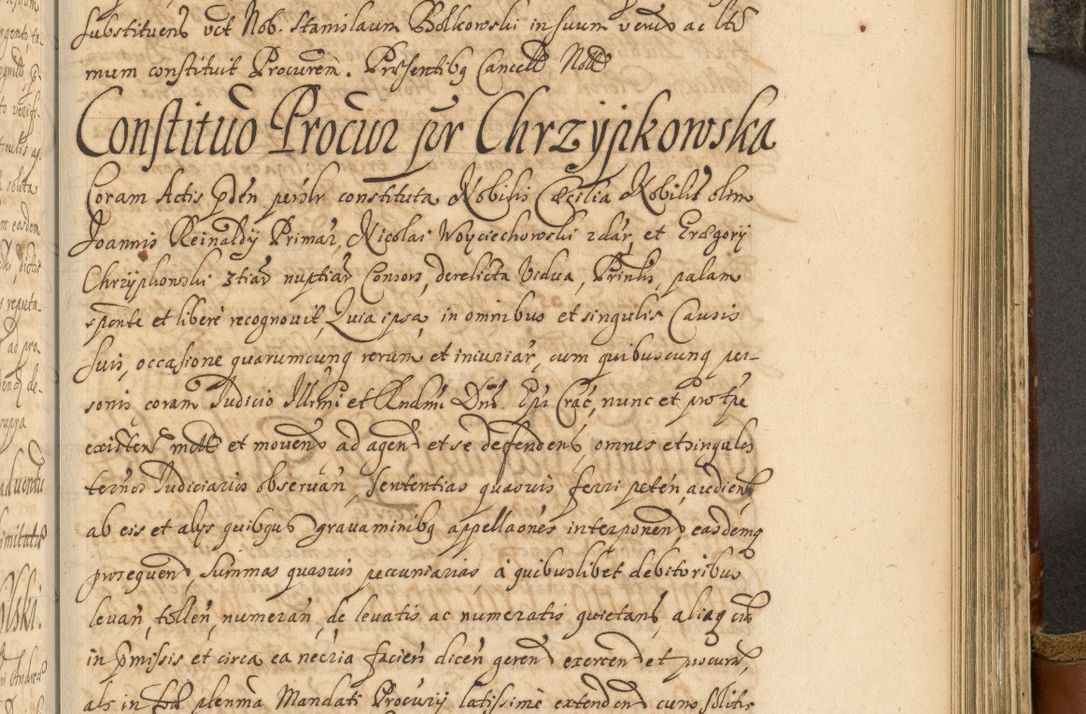 substituens vel Nob. Stanislaum Bolkowski in suum verum ac ltt̃
mum constituit Procurem. Prẽsentibq Cancell Nott
Constituõ Procur pr Chrzypkowska
Coram Actis pden persnlr constituta Nobilis Cæcilia Nobiliũ olim
Joannis Reinaldy Primar, Nicolai Woyciechowski 2dar, et Grægory
Chrzypkowski 3tiar nuptiar Consors, derelicta Vidua, Prinlis, palam
sponte et libere recognovit, Quia ipsa, in omnibus et singulis Causis
suis, occasione quarumcunq rerum et iniuriar, cum quibuscunq per-
sonis coram Judicio Illrmi et Rndmi Dni Epi Crac, nunc et pro tpe
existen mott et moven ad agen et se defenden, omnes et singulos
ternos Judiciarios observan, sententias quasvis ferri peten audien
ab eis et alys quibqus gravaminibq appellaones interponen easdemq
prosequen, Summas quasvis pecuniarias a quibuslibet debitoribus
levan, tollen, numeran, de levatis ac numeratis quietan, aliaq õia
in pmissis et circa ea necria facien dicen geren exercen et procuran,
als in plenma Mandati Procury latissime extenden cum solitis